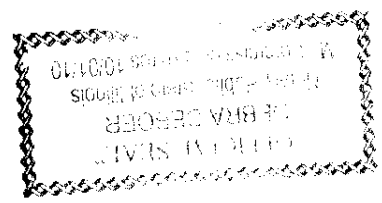 OFFICIAL SEAL"
DEBRA DEBOER
Notary Public, State of Illinois
My Commission Expires 10/01/10